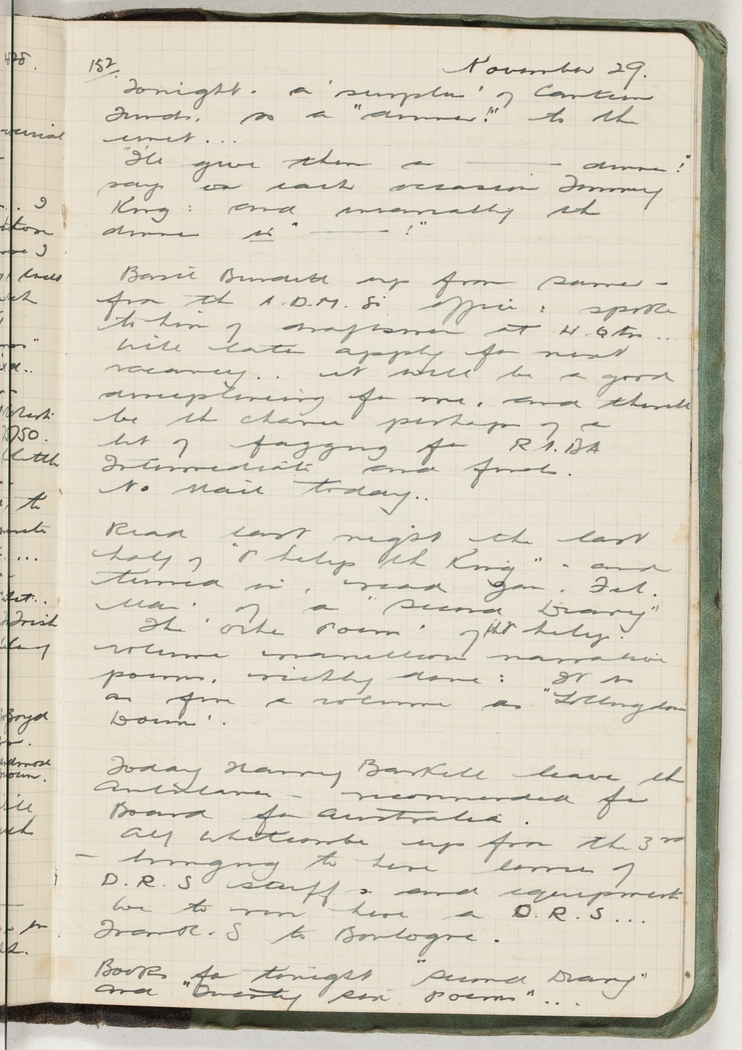 152.
November 29.
Tonight. a 'surplus' of Canteen
Funds, so a "dinner!" to the
unit...
"I'll give them a ——— dinner!"
says on each occasion Tommy
King: and invariably the
dinner is "——— !"
Basil Burdett up from Somme -
from the A.D.M.S. office: spoke
to him of draftsmen at H.Qtrs..
Will later apply for next
vacancy.. it will be a good
disciplining for me, and there'll
be the chance perhaps of a
bit of fagging for R.I.BA
Intermediate and final.
No mail today..
Read last night the last
half of "Philip the King" - and
turned in, read Jan. Feb.
Mar. of a "Second Diary"
The 'other Poems' of the Philip
volume marvellous narrative
poems, richly done: It is
as fine a volume as "Lollingdon
Downs'.
Today Harry Barkell leaves the
Ambulance - recommended for
Board for Australia.
Alf Whitcombe up from the 3rd
- bringing to here some of
D.R.S staff: and equipment
we to run here a D.R.S...
Frank. S to Boulogne.
Books for tonight "Second Diary"
and "Twenty six Poems"...